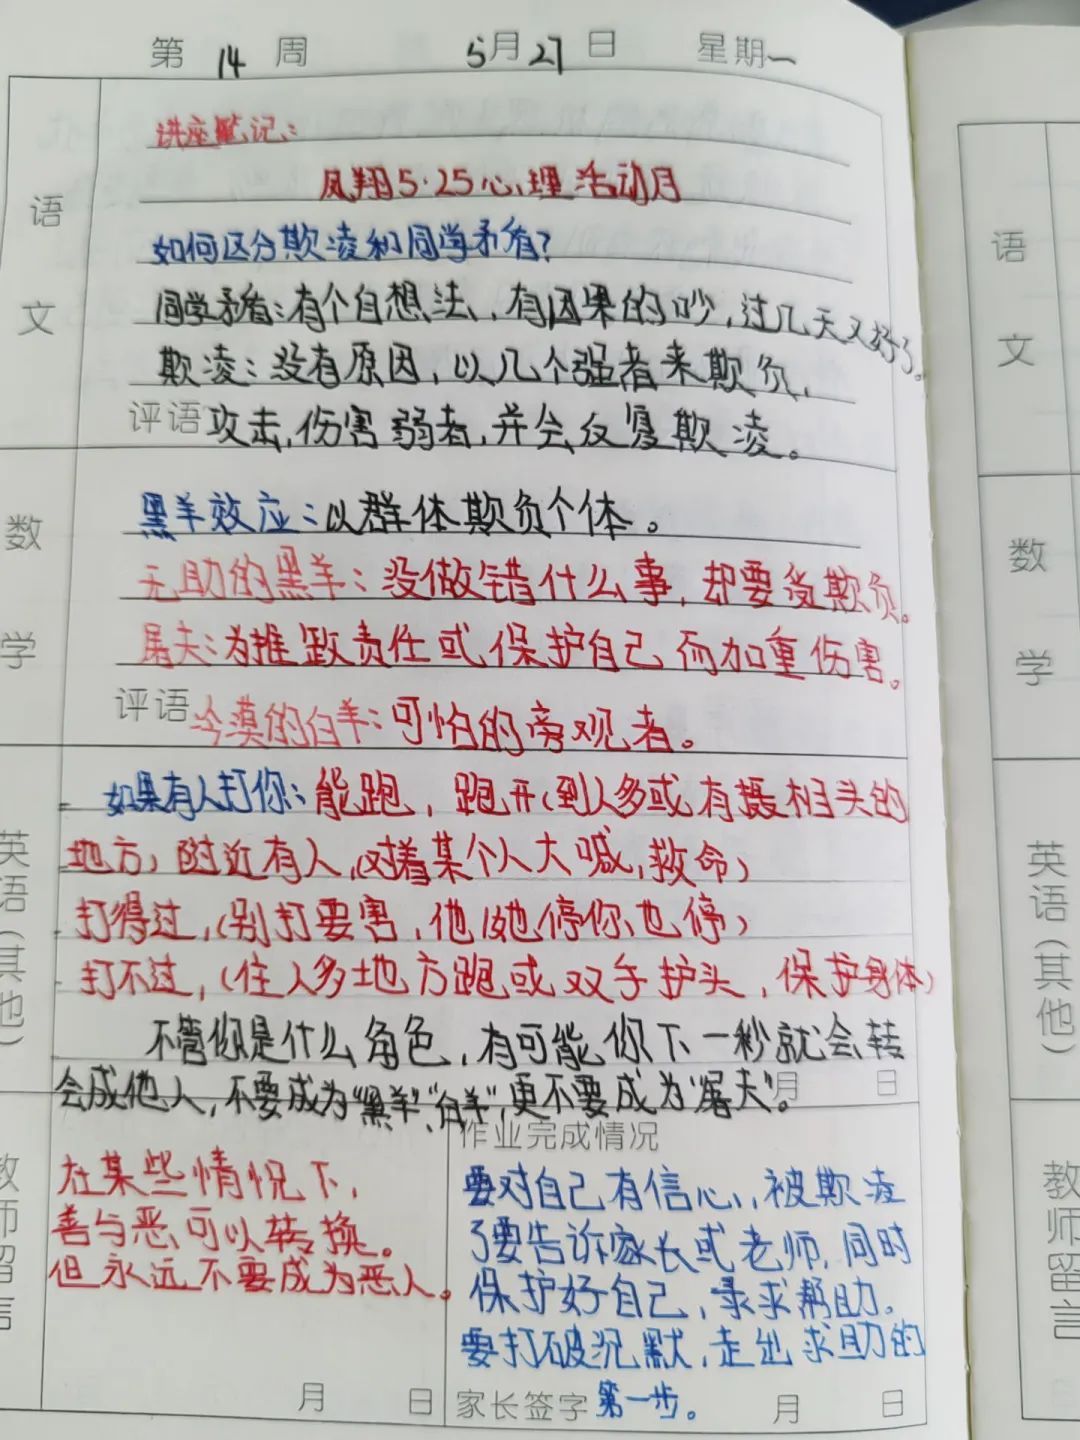 第 14 周 5月27日 星期一
讲座笔记:
凤翔5·25心理活动月
语
文
如何区分欺凌和同学矛盾?
同学矛盾:有个自想法,有因果的吵,过几天又好了。
欺凌:没有原因,以几个强者来欺负,
评语 攻击,伤害弱者,并会反复欺凌。
数
学
黑羊效应:以群体欺负个体。
无助的黑羊:没做错什么事,却要受欺负。
屠夫:为推卸责任或保护自己而加重伤害。
评语 冷漠的白羊:可怕的旁观者。
英语(其他)
如果有人打你:能跑,跑开(到人多或有摄相头的
地方,附近有人,(对着某个人大喊,救命)
打得过,(别打要害,他/她停你也停)
打不过,(往人多地方跑或双手护头,保护身体)
不管你是什么角色,有可能你下一秒就会转
月 日
会成他人,不要成为“黑羊”、“白羊”,更不要成为“屠夫”。
教师留言
在某些情况下,
善与恶可以转换。
但永远不要成为恶人。
月 日
作业完成情况
要对自己有信心,被欺凌
了要告诉家长或老师,同时
保护好自己,寻求帮助。
要打破沉默,走出求助的
家长签字 第一步。 月 日
语
文
数
学
英语(其他)
教师留言